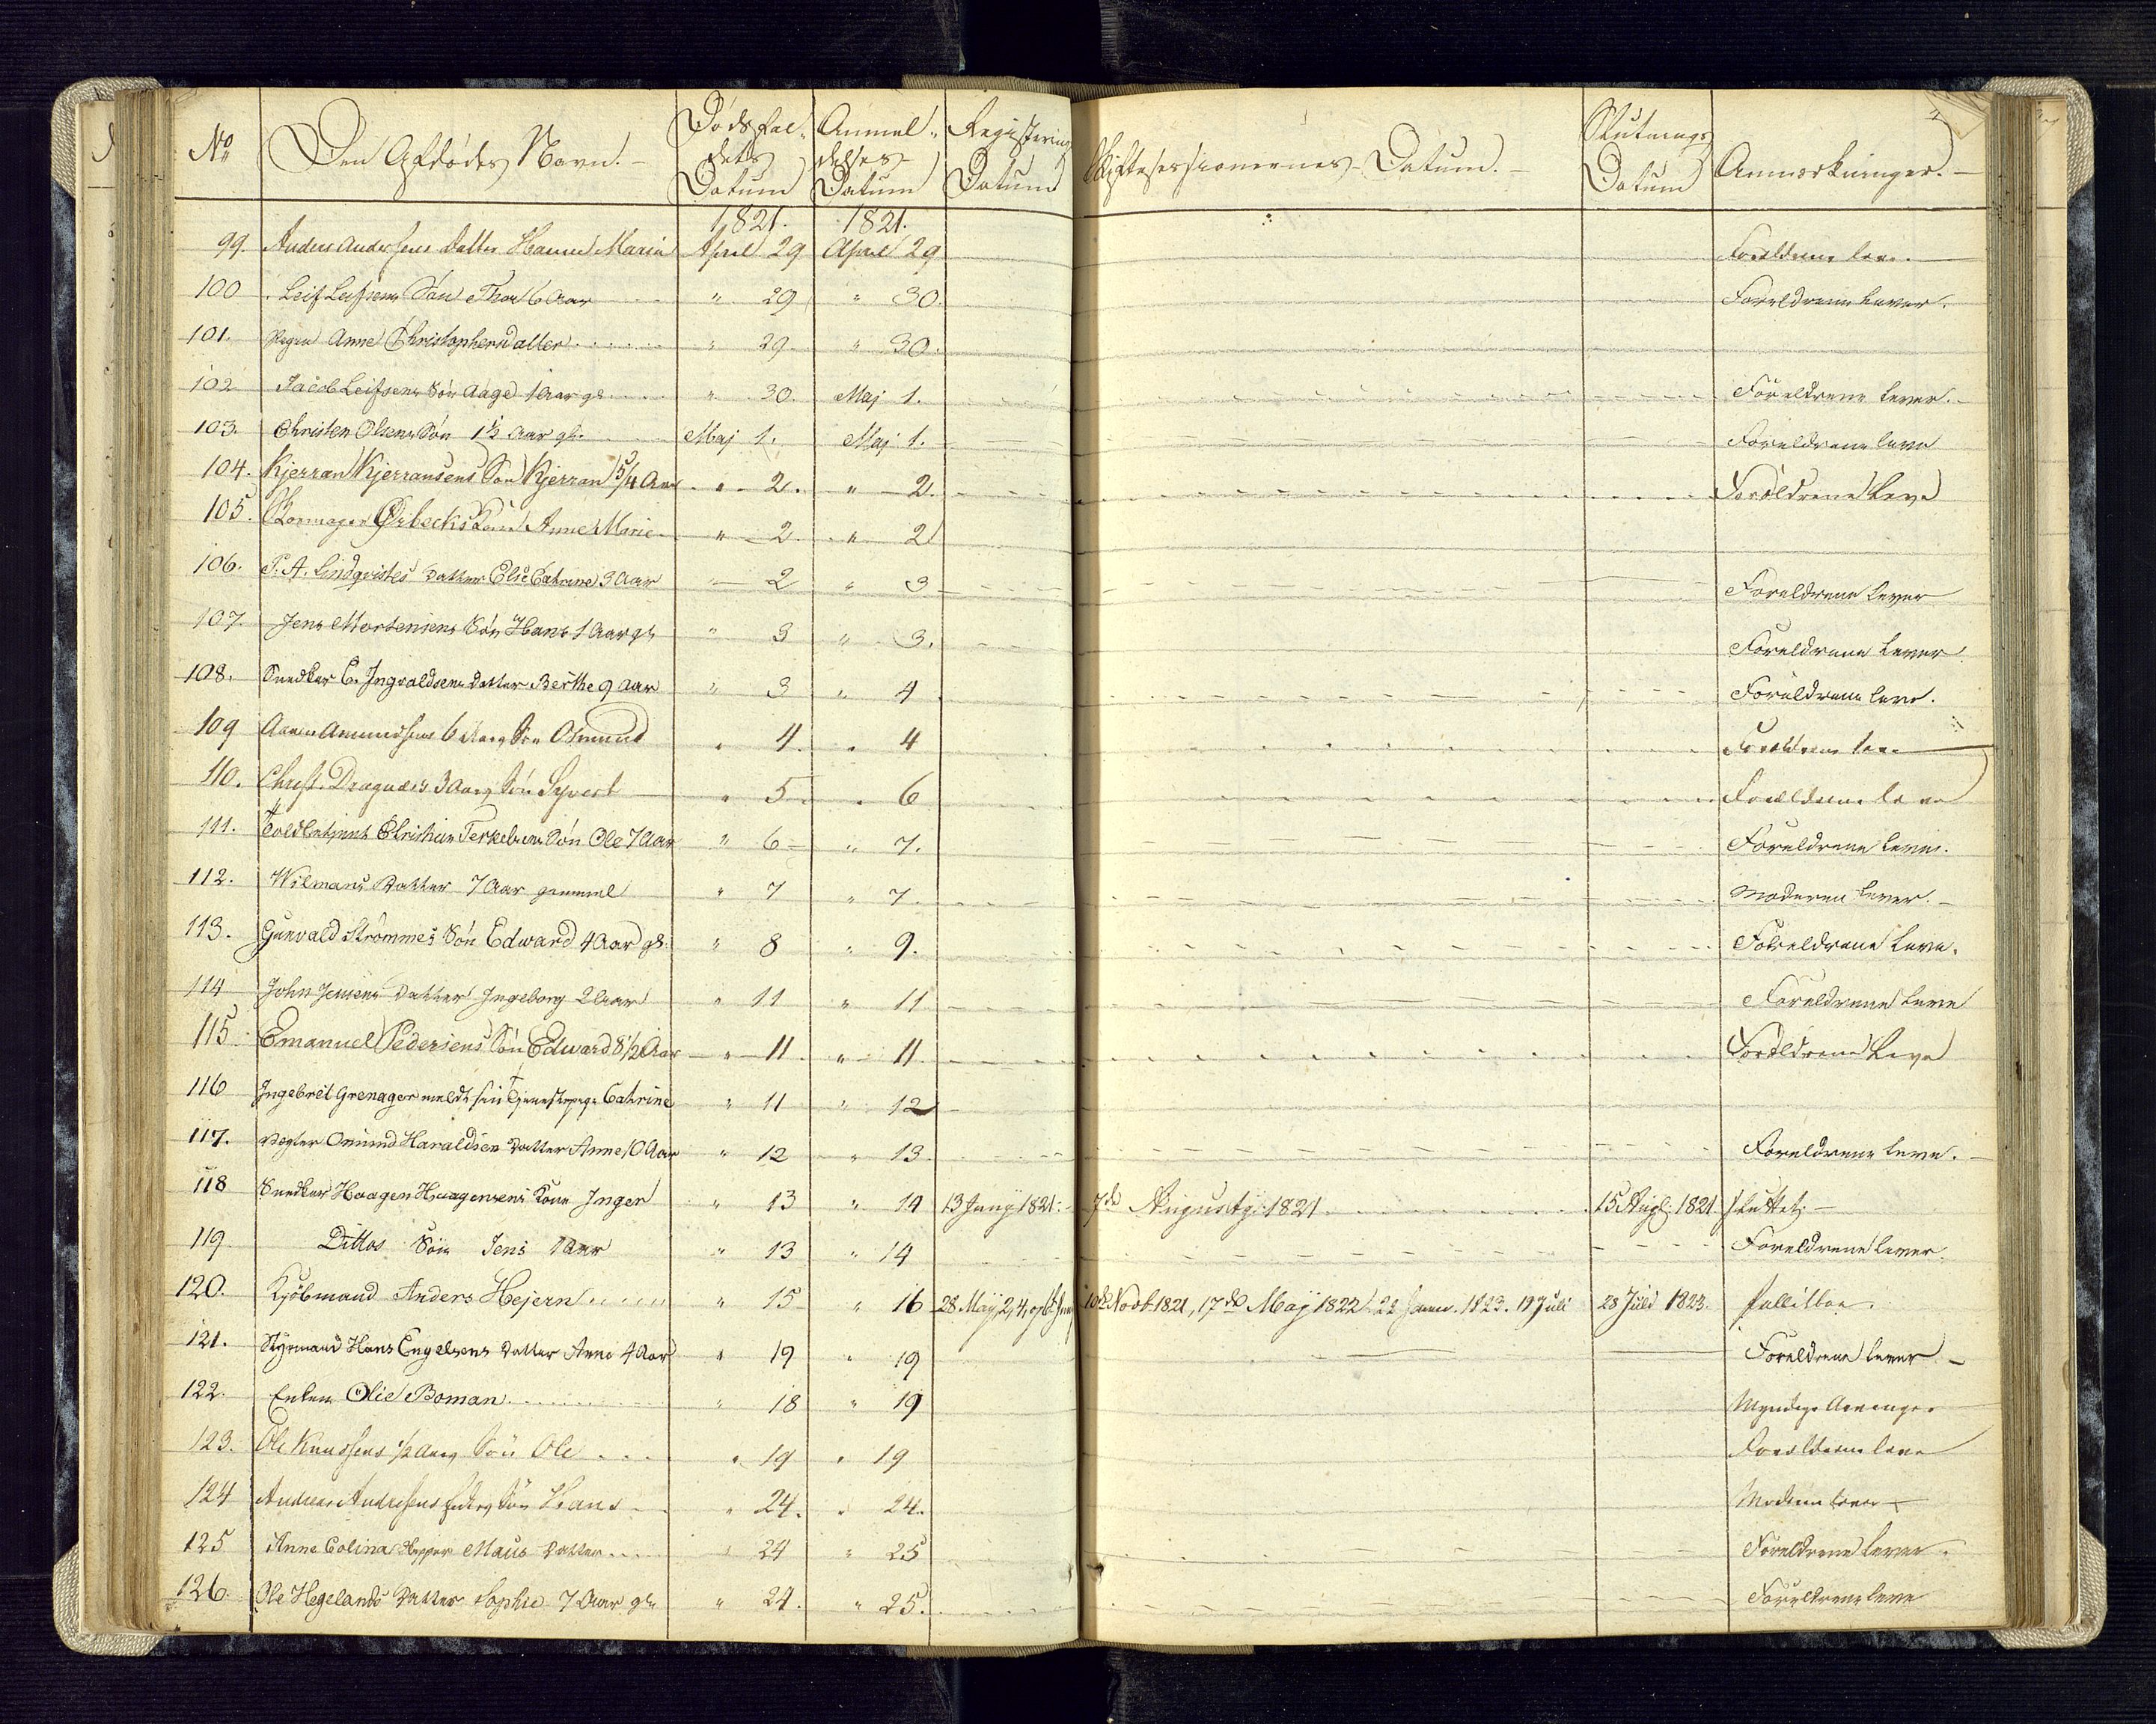 No Den Afdødes Navn. Dødsfal- Anmel- Registerings Skiftesessionernes Datum. Slutnings Anmærkninger.
dets delses
Datum Datum Datum Datum
1821. 1821.
99. Anders Andersens Datter Hanne Maria April 29 April 29 Forældrene leve.
100 Leif Leifsens Søn Thor 6 Aar " 29 " 30. Forældrene lever.
101. Anne Christophersdatter " 29. " 30.
102 Jacob Leifsens Søn Aage 1 Aar gl. " 30. Maj 1. Forældrene lever.
103. Christen Olsens Søn 1½ Aar gl. Maj 1. Maj 1. Forældrene leve
104. Kjerran Kjerransens Søn Kjerran 5/4 Aar " 2. " 2. Forældrene leve
105. Ørbecks Kone Anne Marie " 2. " 2
106. P. A. Lindqvistes Datter Else Catrine 3 Aar " 2 " 3 Forældrene lever
107 Jens Mortensens Søn Hans 1 Aar gl. " 3 " 3. Forældrene lever.
108. Snedker C. Ingvaldsens Datter Berthe 9 Aar " 3 " 4 Forældrene leve.
109 Aanen Amundsens 6 Aarg Søn Osmund " 4. " 4 Forældrene leve
110. Christ. Dragnæs 3 Aarg Søn Syvert " 5 " 6 Forældrene leve
111. Toldbetjent Christian Terkelsens Søn Ole 7 Aar " 6 " 7. Forældrene lever.
112. Wilmans Datter 7 Aar gammel " 7 " 7. Moderen lever.
113. Gunvald Strømmes Søn Edward 4 Aar gl. " 8 " 9. Forældrene leve.
114 John Jensens Datter Ingeborg 2 Aar " 11 " 11 Forældrene leve
115. Emanuel Pedersens Søn Edward 8 1/2 Aar " 11. " 11. Forældrene leve
116 Ingebret Grenager meldt sin Tjenestepige Catrine " 11 " 12
117. Vægter Omund Haraldsen Datter Anne 10 Aar " 12 " 13 Forældrene leve.
118 Snedker Haagen Haagensens Kone Inger " 13 " 14 13 Junÿ 1821. 7de Augusty 1821 15 Aug. 1821 sluttet
119 Dittos Søn Jens 1 Aar " 13 " 14 Forældrene lever.
120. Kjøbmand Anders Hejern " 15 " 16 28 Maÿ, 2, 4, og 6 Jun 10de Novb. 1821, 17de Maÿ 1822. 22 Janu. 1823. 19 Juli 28 Juli 1823. fallitboe.
121. Styrmand Hans Engelsens Datter Anne 4 Aar " 19 " 19 Forældrene lever
122. Enken Olie Boman " 18 " 19 Myndige Arvinger
123. Ole Knudsens 1/2 Aarg Søn Ole " 19 " 19 Forældrene leve
124 Andreas Andersens Søn Hans " 24. " 24. Moderen lever
125 Anne Colina Maus Datter " 24 " 25 Forældrene lever.
126. Ole Hegelands Datter Sophie 7 Aar gl. " 24. " 25. Forældrene leve